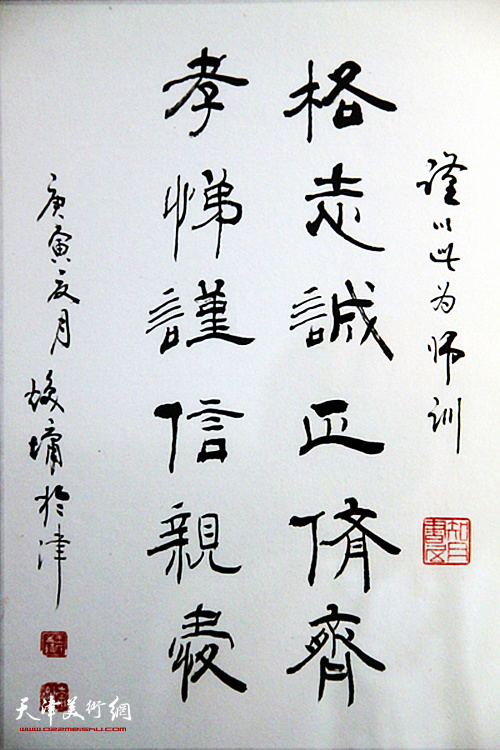 谨以此为师训
格志誠正脩齊
孝悌謹信親愛
庚寅六月
於津
天津美術網
www.022meishu.com